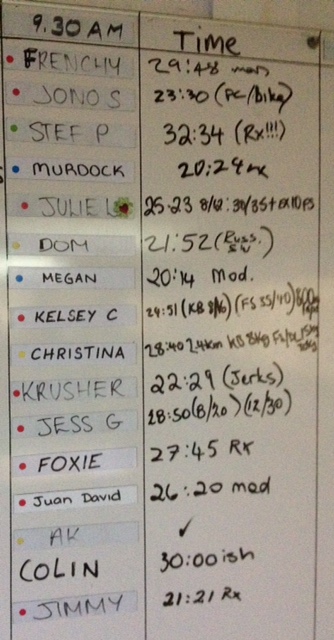 9.30 AM Time
FRENCHY 29:48 mod
JONO S 23:30 (PC/bike)
STEF P 32:34 (Rx!!!)
MURDOCK 20:29 rx
JULIE L 25:23
DOM 21:52 (Russ. SW)
MEGAN 20:14 Mod.
KELSEY C 24:51 (KB 8/16) (FS 35/40) 800m
CHRISTINA 28:40 2.4km KB 8kg
KRUSHER 22:29 (Jerks)
JESS G 28:50 (8/20) (12/30)
FOXIE 27:45 Rx
Juan David 26:20 mod
AK ✓
COLIN 30:00 ish
JIMMY 21:21 Rx